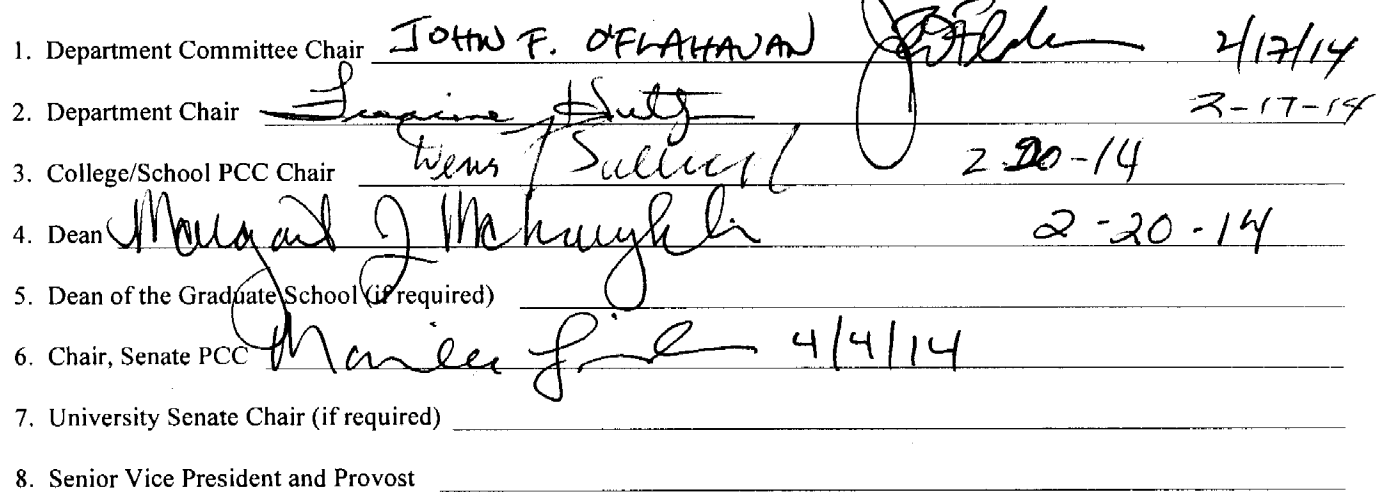 1. Department Committee Chair JOHN F. O'FLAHAVAN 2/17/14
2. Department Chair 2-17-14
3. College/School PCC Chair 2-20-14
4. Dean Margaret J McLaughlin 2-20-14
5. Dean of the Graduate School (if required)
6. Chair, Senate PCC 4/4/14
7. University Senate Chair (if required)
8. Senior Vice President and Provost